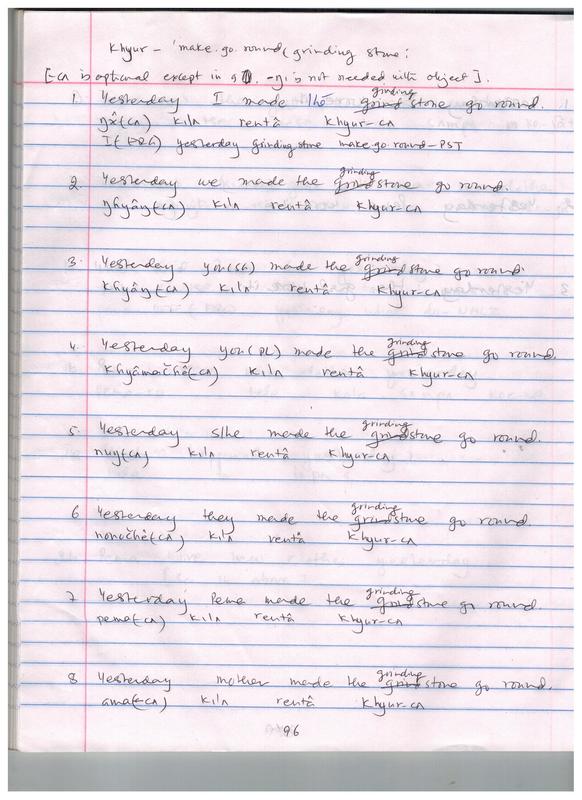 Khyur – 'make.go.round (grinding stone:
[-cʌ is optional except in 9, -ŋi is not needed with object].
1. Yesterday I made the grinding stone go round.
ŋx̂(cʌ) kilʌ rentâ khyur-cʌ
I(ERG) yesterday grinding stone make.go.round-PST
2. Yesterday we made the grinding stone go round.
ŋhyâŋ(cʌ) kilʌ rentâ khyur-cʌ
3. Yesterday you(SG) made the grinding stone go round.
khyâŋ(cʌ) kilʌ rentâ khyur-cʌ
4. Yesterday you(PL) made the grinding stone go round.
khyâmačhê(-cʌ) kilʌ rentâ khyur-cʌ
5. Yesterday s/he made the grinding stone go round.
huŋ(cʌ) kilʌ rentâ khyur-cʌ
6 Yesterday they made the grinding stone go round
honočhê(-cʌ) kilʌ rentâ khyur-cʌ
7 Yesterday Peme made the grinding stone go round.
peme(-cʌ) kilʌ rentâ khyur-cʌ
8 Yesterday mother made the grinding stone go round.
ama(-cʌ) kilʌ rentâ khyur-cʌ
96